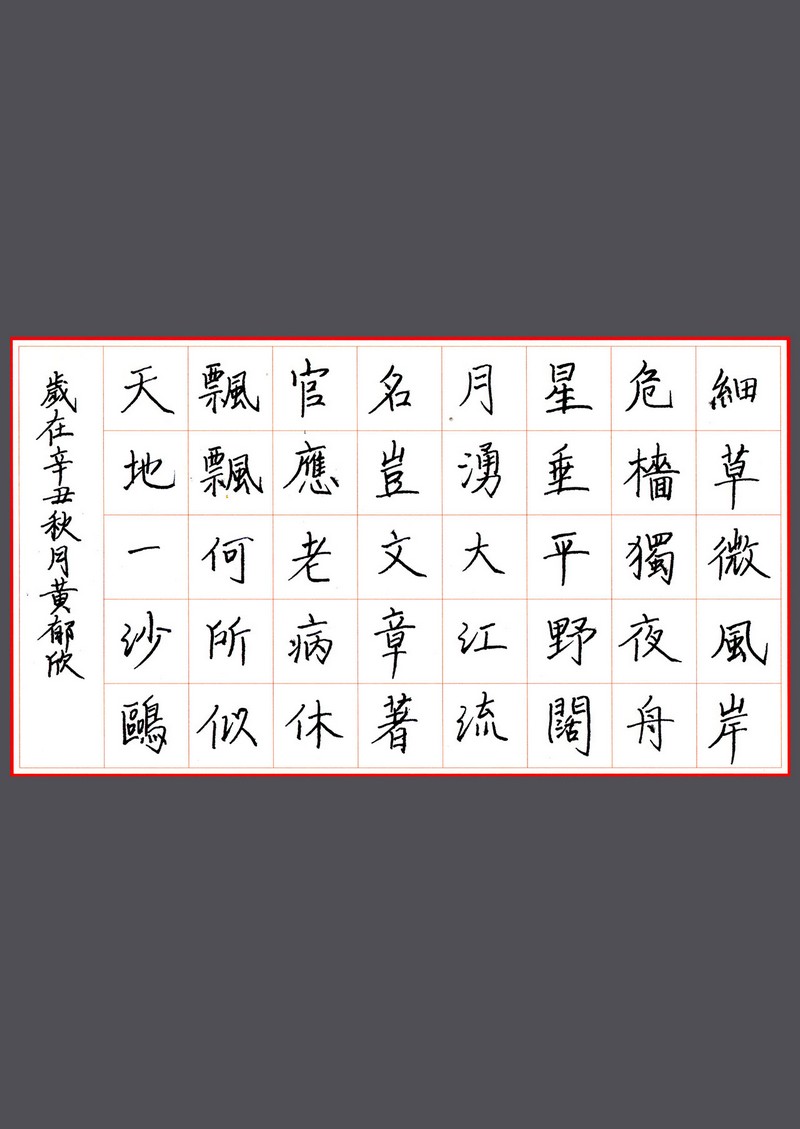 細草微風岸
危檣獨夜舟
星垂平野闊
月湧大江流
名豈文章著
官應老病休
飄飄何所似
天地一沙鷗
歲在辛丑秋月黃郁欣